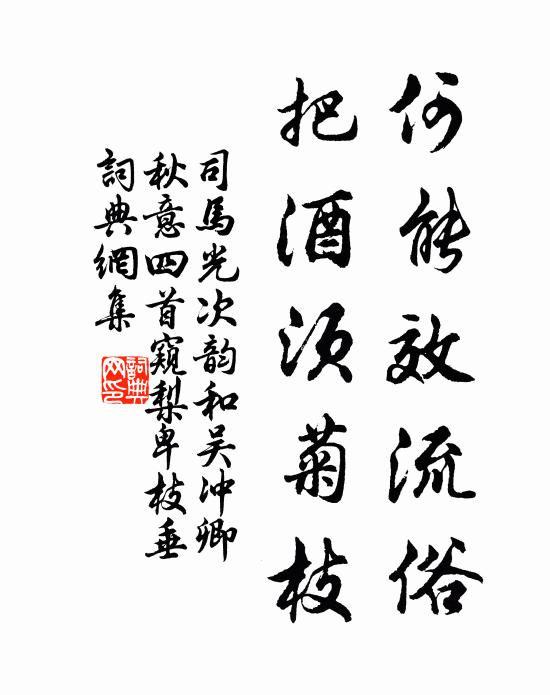 何能效流俗
把酒须菊枝
司馬光次韵和吴冲卿
秋意四首窥梨卑枝垂
詞典網集
詞典网印